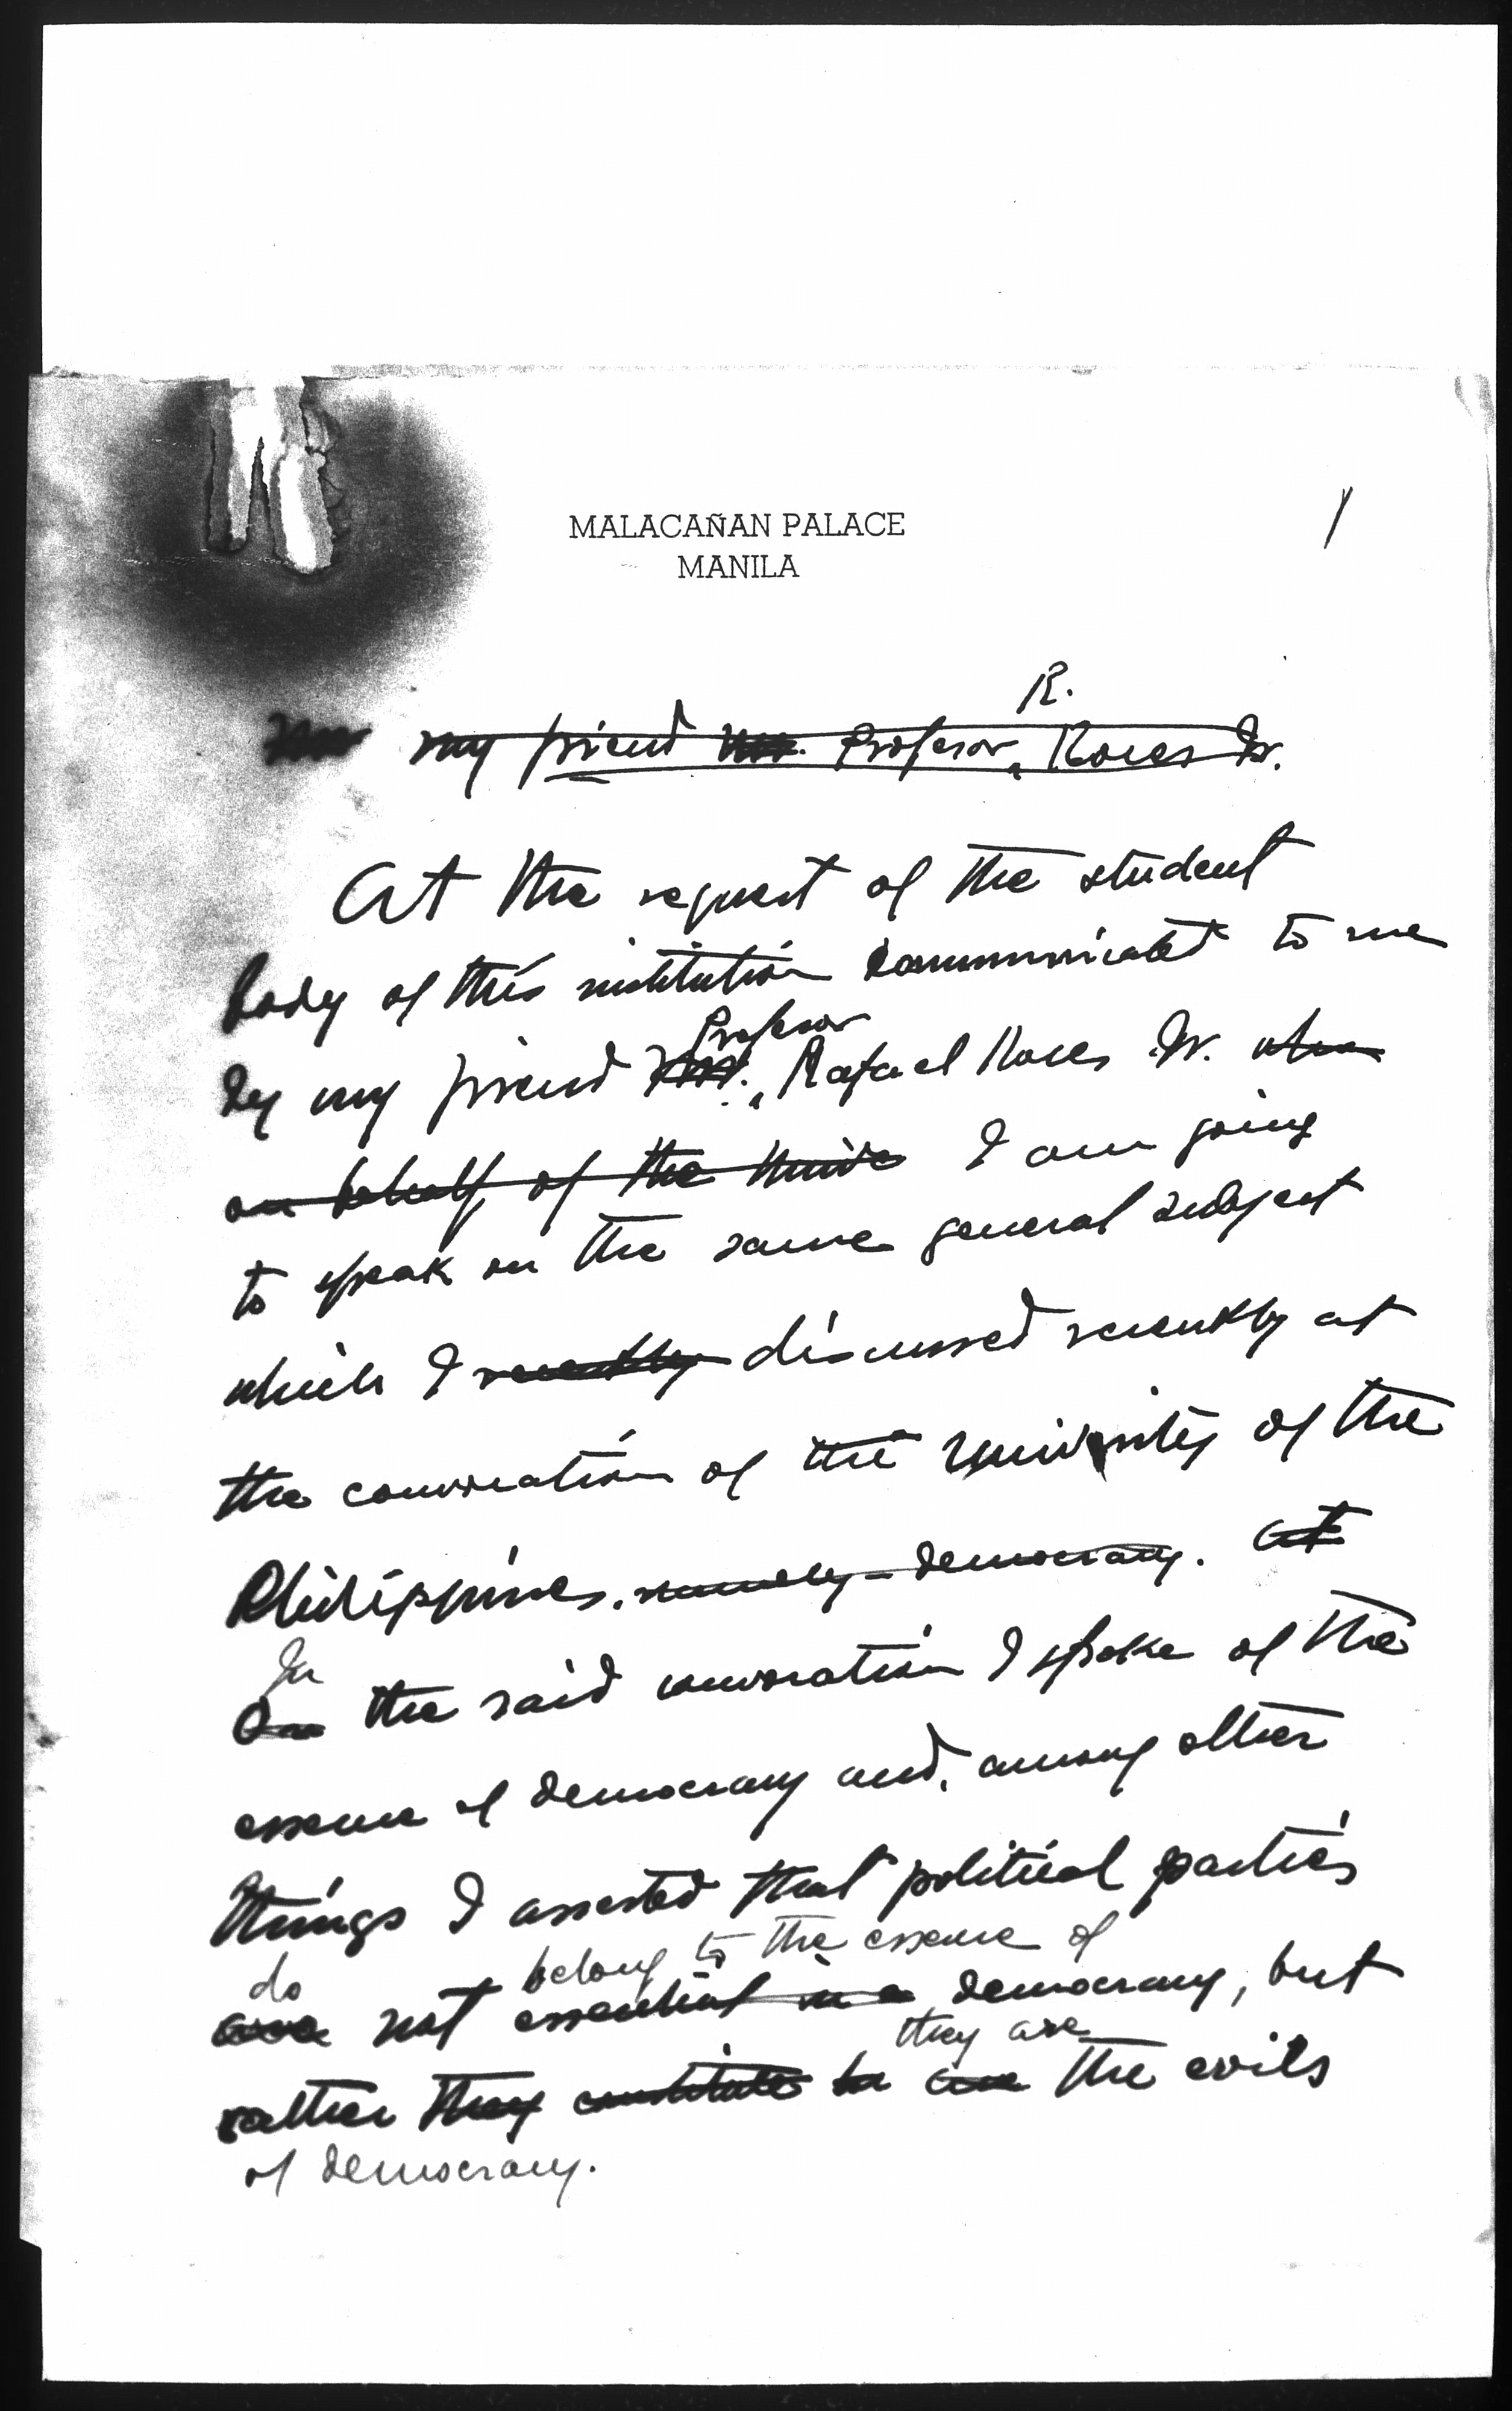 MALACAÑAN PALACE
MANILA
1
R.
my friend Mr. Profesor, Roces Jr.
At the request of the student
body of this institution communicated to me
Profesor
by my friend Mr., Rafael Roces Jr. who
on behalf of the Unive I am going
to speak on the same general subject
which I recently discussed recently at
the convocation of the University of the
Philippines. namely - democracy. At
In
On the said convocation I spoke of the
essence of democracy and, among other
things I asserted that political parties
do belong to the essence of
are not essential in a democracy, but
they are
rather they constitute the evils
of democracy.